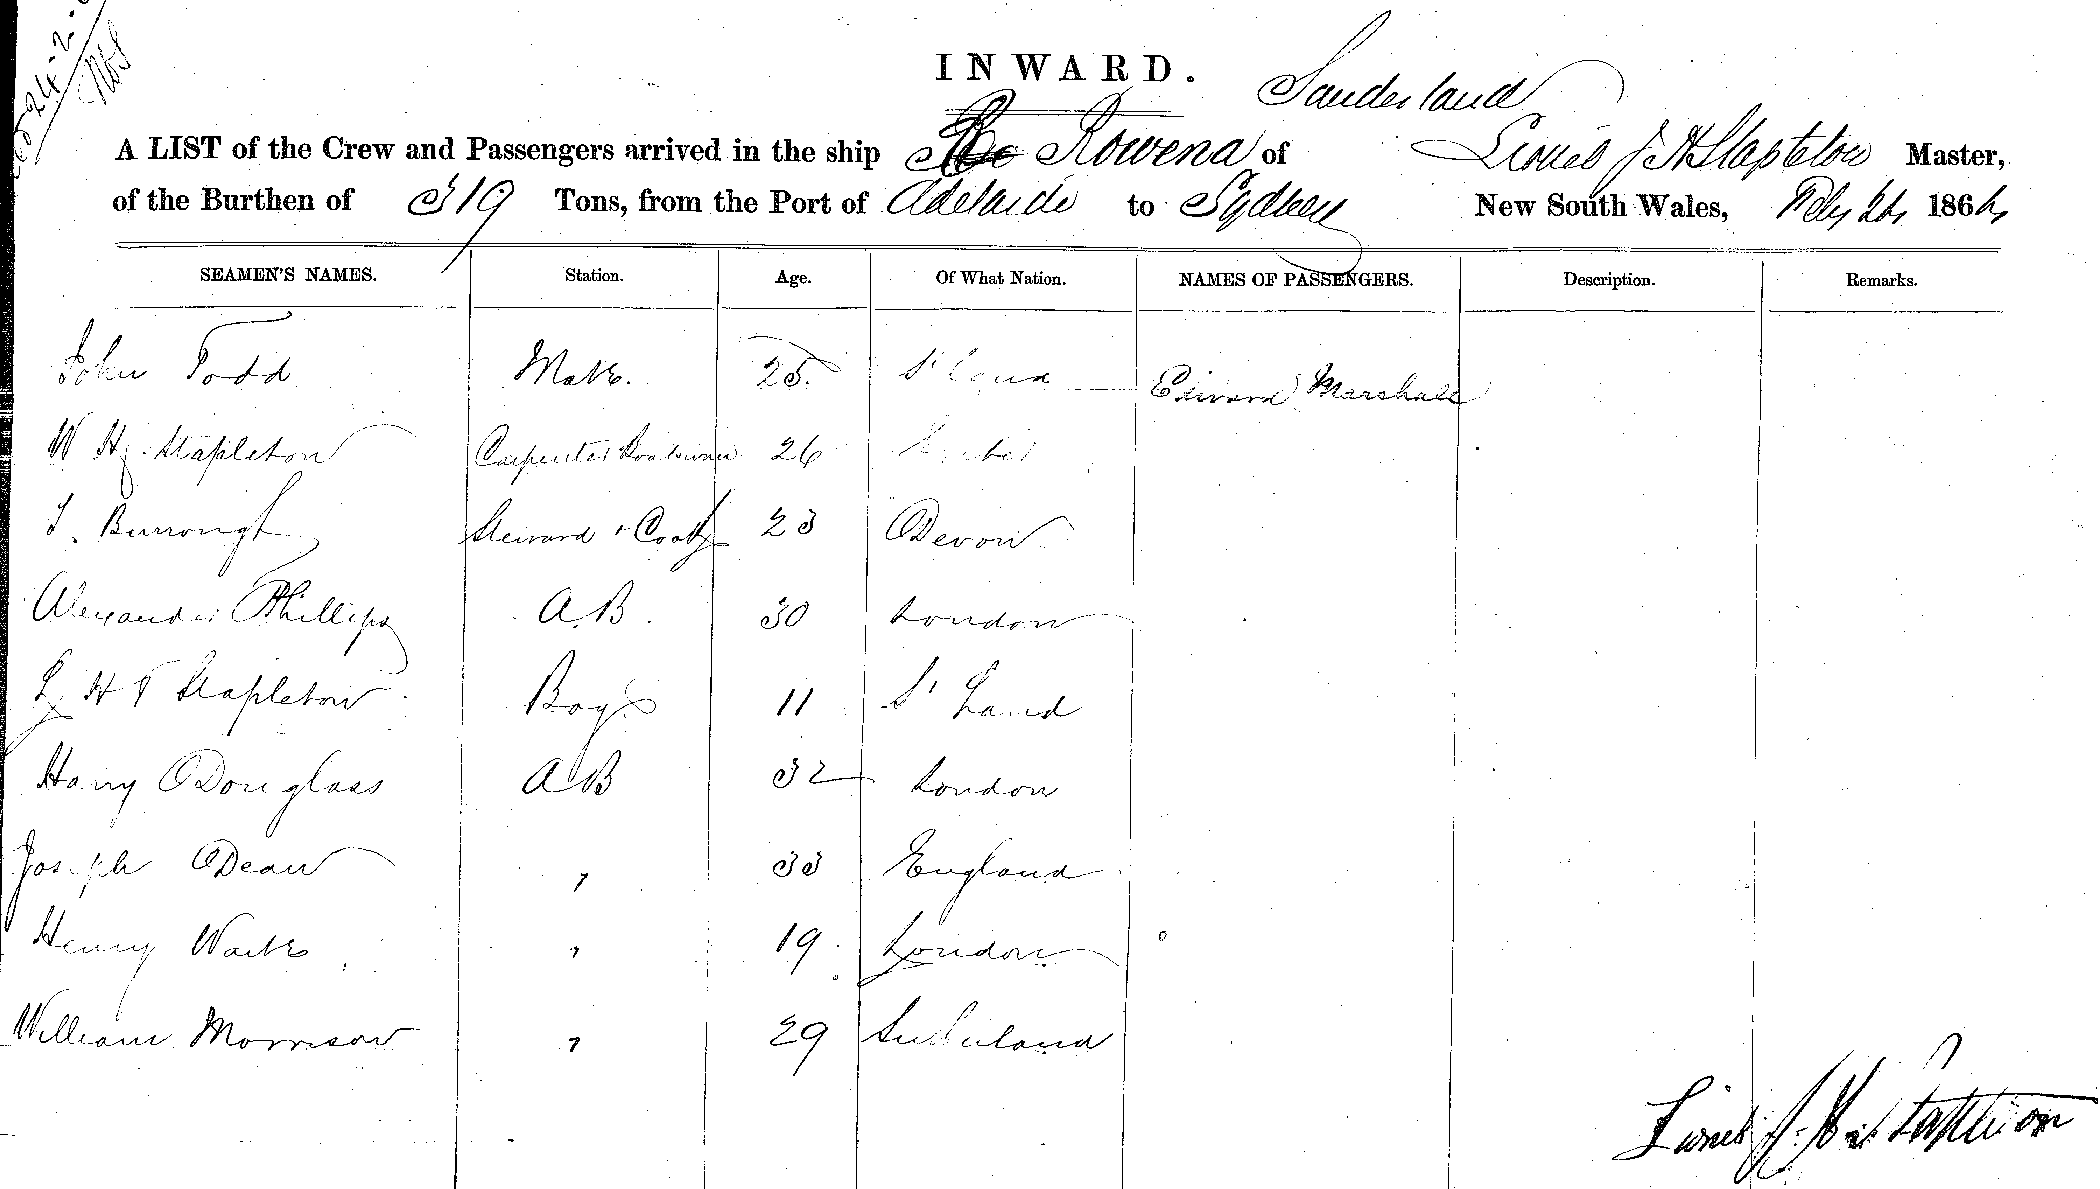 24-2-
INWARD.
Sunderland
A LIST of the Crew and Passengers arrived in the ship Rowena of Lionel J H Stapleton Master,
of the Burthen of 319 Tons, from the Port of Adelaide to Sydney New South Wales, Feby 24, 1864
SEAMEN'S NAMES. Station. Age. Of What Nation. NAMES OF PASSENGERS. Description. Remarks.
John Todd Mate. 25. S' Land Edward Marshall
W H Stapleton Carpenter Boatswain 26
Burrough Steward + Cook 23 Devon
Alexander Phillips A.B. 30 London
L H T Stapleton Boy 11 S' Land
Harry Douglass AB 32 London
Joseph Dean " 33 England
Henry " 19 London
William Morrison " 29 Sunderland
Lionel J. H Stapleton